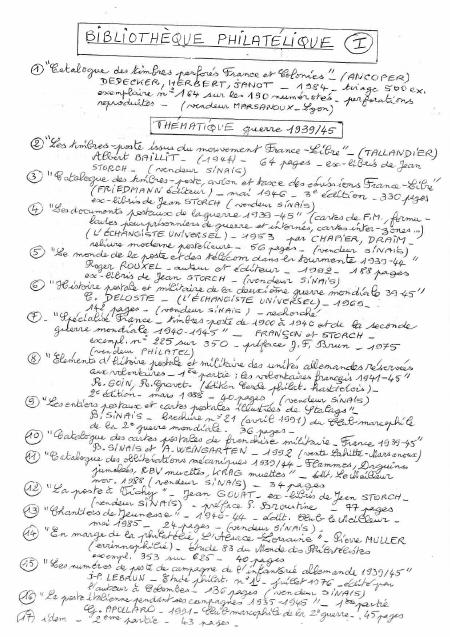 BIBLIOTHÈQUE PHILATÉLIQUE I
① "Catalogue des timbres perforés France et Colonies" - (ANCOPER)
DEDECKER, HERBERT, JANOT - 1984 - tirage 500 ex.
exemplaire n° 164 sur les 190 numérotés - perforations
reproduites - (vendeur MARSANOUX - Lyon)
THÉMATIQUE guerre 1939/45
② "Les timbres-poste issus du mouvement France-Libre" - (TALLANDIER)
Albert BAILLIT - (1947) - 64 pages - ex-libris de Jean
STORCH - (vendeur SINAIS)
③ "Catalogue des timbres-poste, avion et taxe des émissions France-Libre"
(FRIEDMANN éditeur) - mai 1946 - 3e édition - 330 pages
ex-libris de Jean STORCH (vendeur SINAIS)
④ "Les documents postaux de la guerre 1939-45" (cartes de F.M., formu-
laires pour prisonniers de guerre et internés, cartes inter-zones...)
(L'ÉCHANGISTE UNIVERSEL) - 1953 par CHAPIER, DRAIM,
reliure moderne postérieure - 56 pages - (vendeur SINAIS)
⑤ "Le monde de la poste et des télécom dans la tourmente 1939-44"
Roger ROUXEL - auteur et éditeur - 1982 - 188 pages
ex-libris de Jean STORCH - (vendeur SINAIS)
⑥ "Histoire postale et militaire de la deuxième guerre mondiale 39-45"
C. DELOSTE - (L'ÉCHANGISTE UNIVERSEL) - 1969 -
148 pages - (vendeur SINAIS) - recherché
⑦ "Spécialisé France - timbres poste de 1900 à 1940 et de la seconde
guerre mondiale 1940-1945" - FRANÇON et STORCH -
exempl. n° 225 sur 350 - préface J.F. Brun - 1975
(vendeur PHILATEL)
⑧ "Eléments d'histoire postale et militaire des unités allemandes réservées
aux volontaires - 1ère partie : les volontaires français 1941-45"
R. GOIN,
2e édition - mars 1988 - 40 pages (vendeur SINAIS)
⑨ "Les entiers postaux et cartes postales illustrées de Stalags"
B. SINAIS - brochure n° 21 (avril 1991) du Club marcophile
de la 2e guerre mondiale - 36 pages -
⑩ "Catalogue des cartes postales de franchise militaire - France 1939-45"
B. SINAIS et A. WEINGARTEN - 1992 (vente Lahitte - Marsanoux)
⑪ "Catalogue des oblitérations mécaniques 1939/44 - Flammes, Daguins
jumelés, RBV muettes, KRAG muettes" - édit. Le Meilleur
nov. 1988 (vendeur SINAIS) - 34 pages
⑫ "La poste à Vichy" - Jean GOUAT - ex-libris de Jean STORCH -
(vendeur SINAIS) - préface P. Broustine - 77 pages
⑬ "Chantiers de Jeunesse" - 1940-44 - édit. Club le Meilleur -
mai 1985 - 24 pages - (vendeur SINAIS)
⑭ "En marge de la philatélie, l'Alsace-Lorraine" - Pierre MULLER
(érinnophilie) - étude 83 du Monde des Philatélistes
exempl. 353 sur 625 - 40 pages
⑮ "Les numéros de poste de campagne de l'infanterie allemande 1939/45"
J-P LEBAUN - étude philat. n° 1 - juillet 1976 - édité par
l'auteur à Colombes - 136 pages (vendeur SINAIS)
⑯ "La poste italienne pendant ses campagnes 1935-1945" - 1ère partie
G. APOLLARO - 1991 - Club marcophile de la 2e guerre - 45 pages
⑰ idem - 2ème partie - 43 pages -